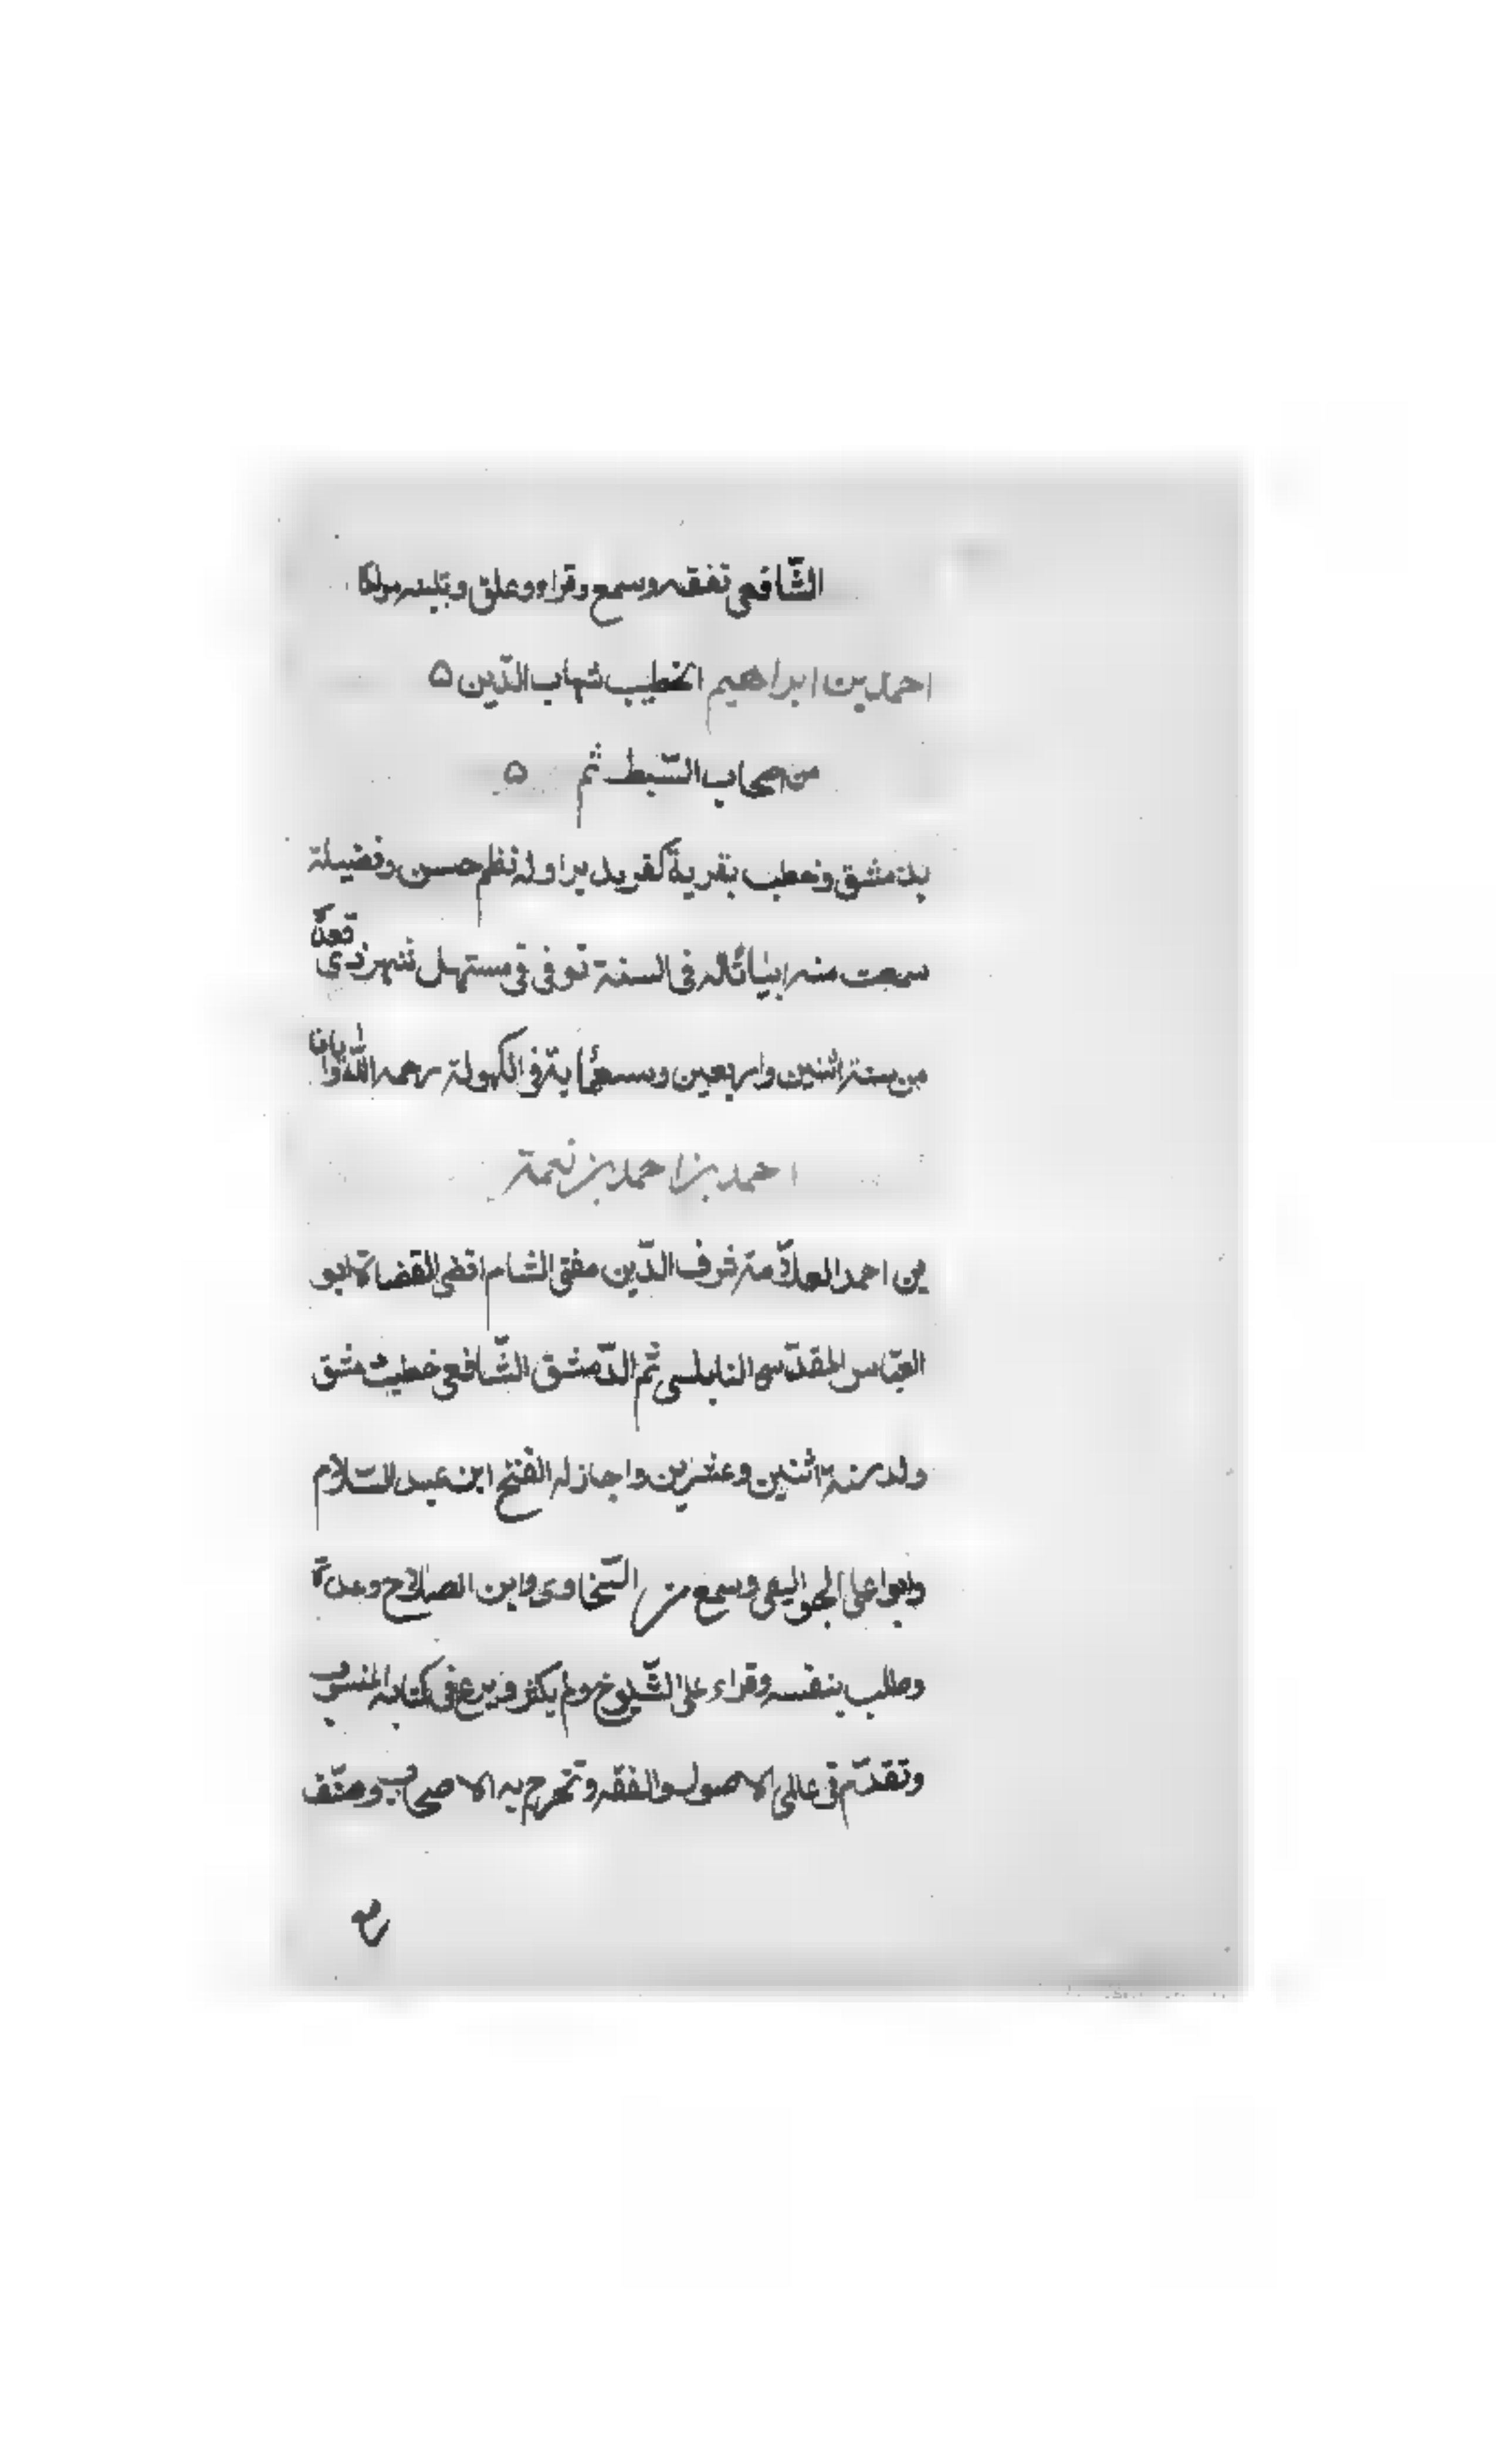 الشّافعي تفقه وسمع وقراء وعلق وبلده مولدًا
احمد بن ابراهيم الخطيب شهاب الدّين ۵
من اصحاب السّبط ثم ۵
بدمشق وخطب بقرية كفر يد برا وله نظم حسن وفضيلة
سمعت منه ابياتًا له في السنة توفي في مستهل شهر ذي قعدة
من سنة اثنين واربعين وسبعمأية في الكهولة رحمه الله وايانا
احمد بن احمد بن نعمة
بن احمد العلاّمة شرف الدّين مفتي الشام اقضى القضاة ابو
العبّاس المقدّسي النابلسي ثم الدّمشقي الشّافعي خطيب مشق
ولد سنة اثنين وعشرين واجاز له الفتح ابن عبد السّلام
وابوا علي الجواليقي وسمع من السّخاوي وابن الصلاح وعدّة
وطلب بنفسه وقراء على الشّيوخ ولم يكثر وبرع في كتابه المنسوب
وتقدّم في عالى الاصول والفقه وتخرج به الاصحاب وصنّف